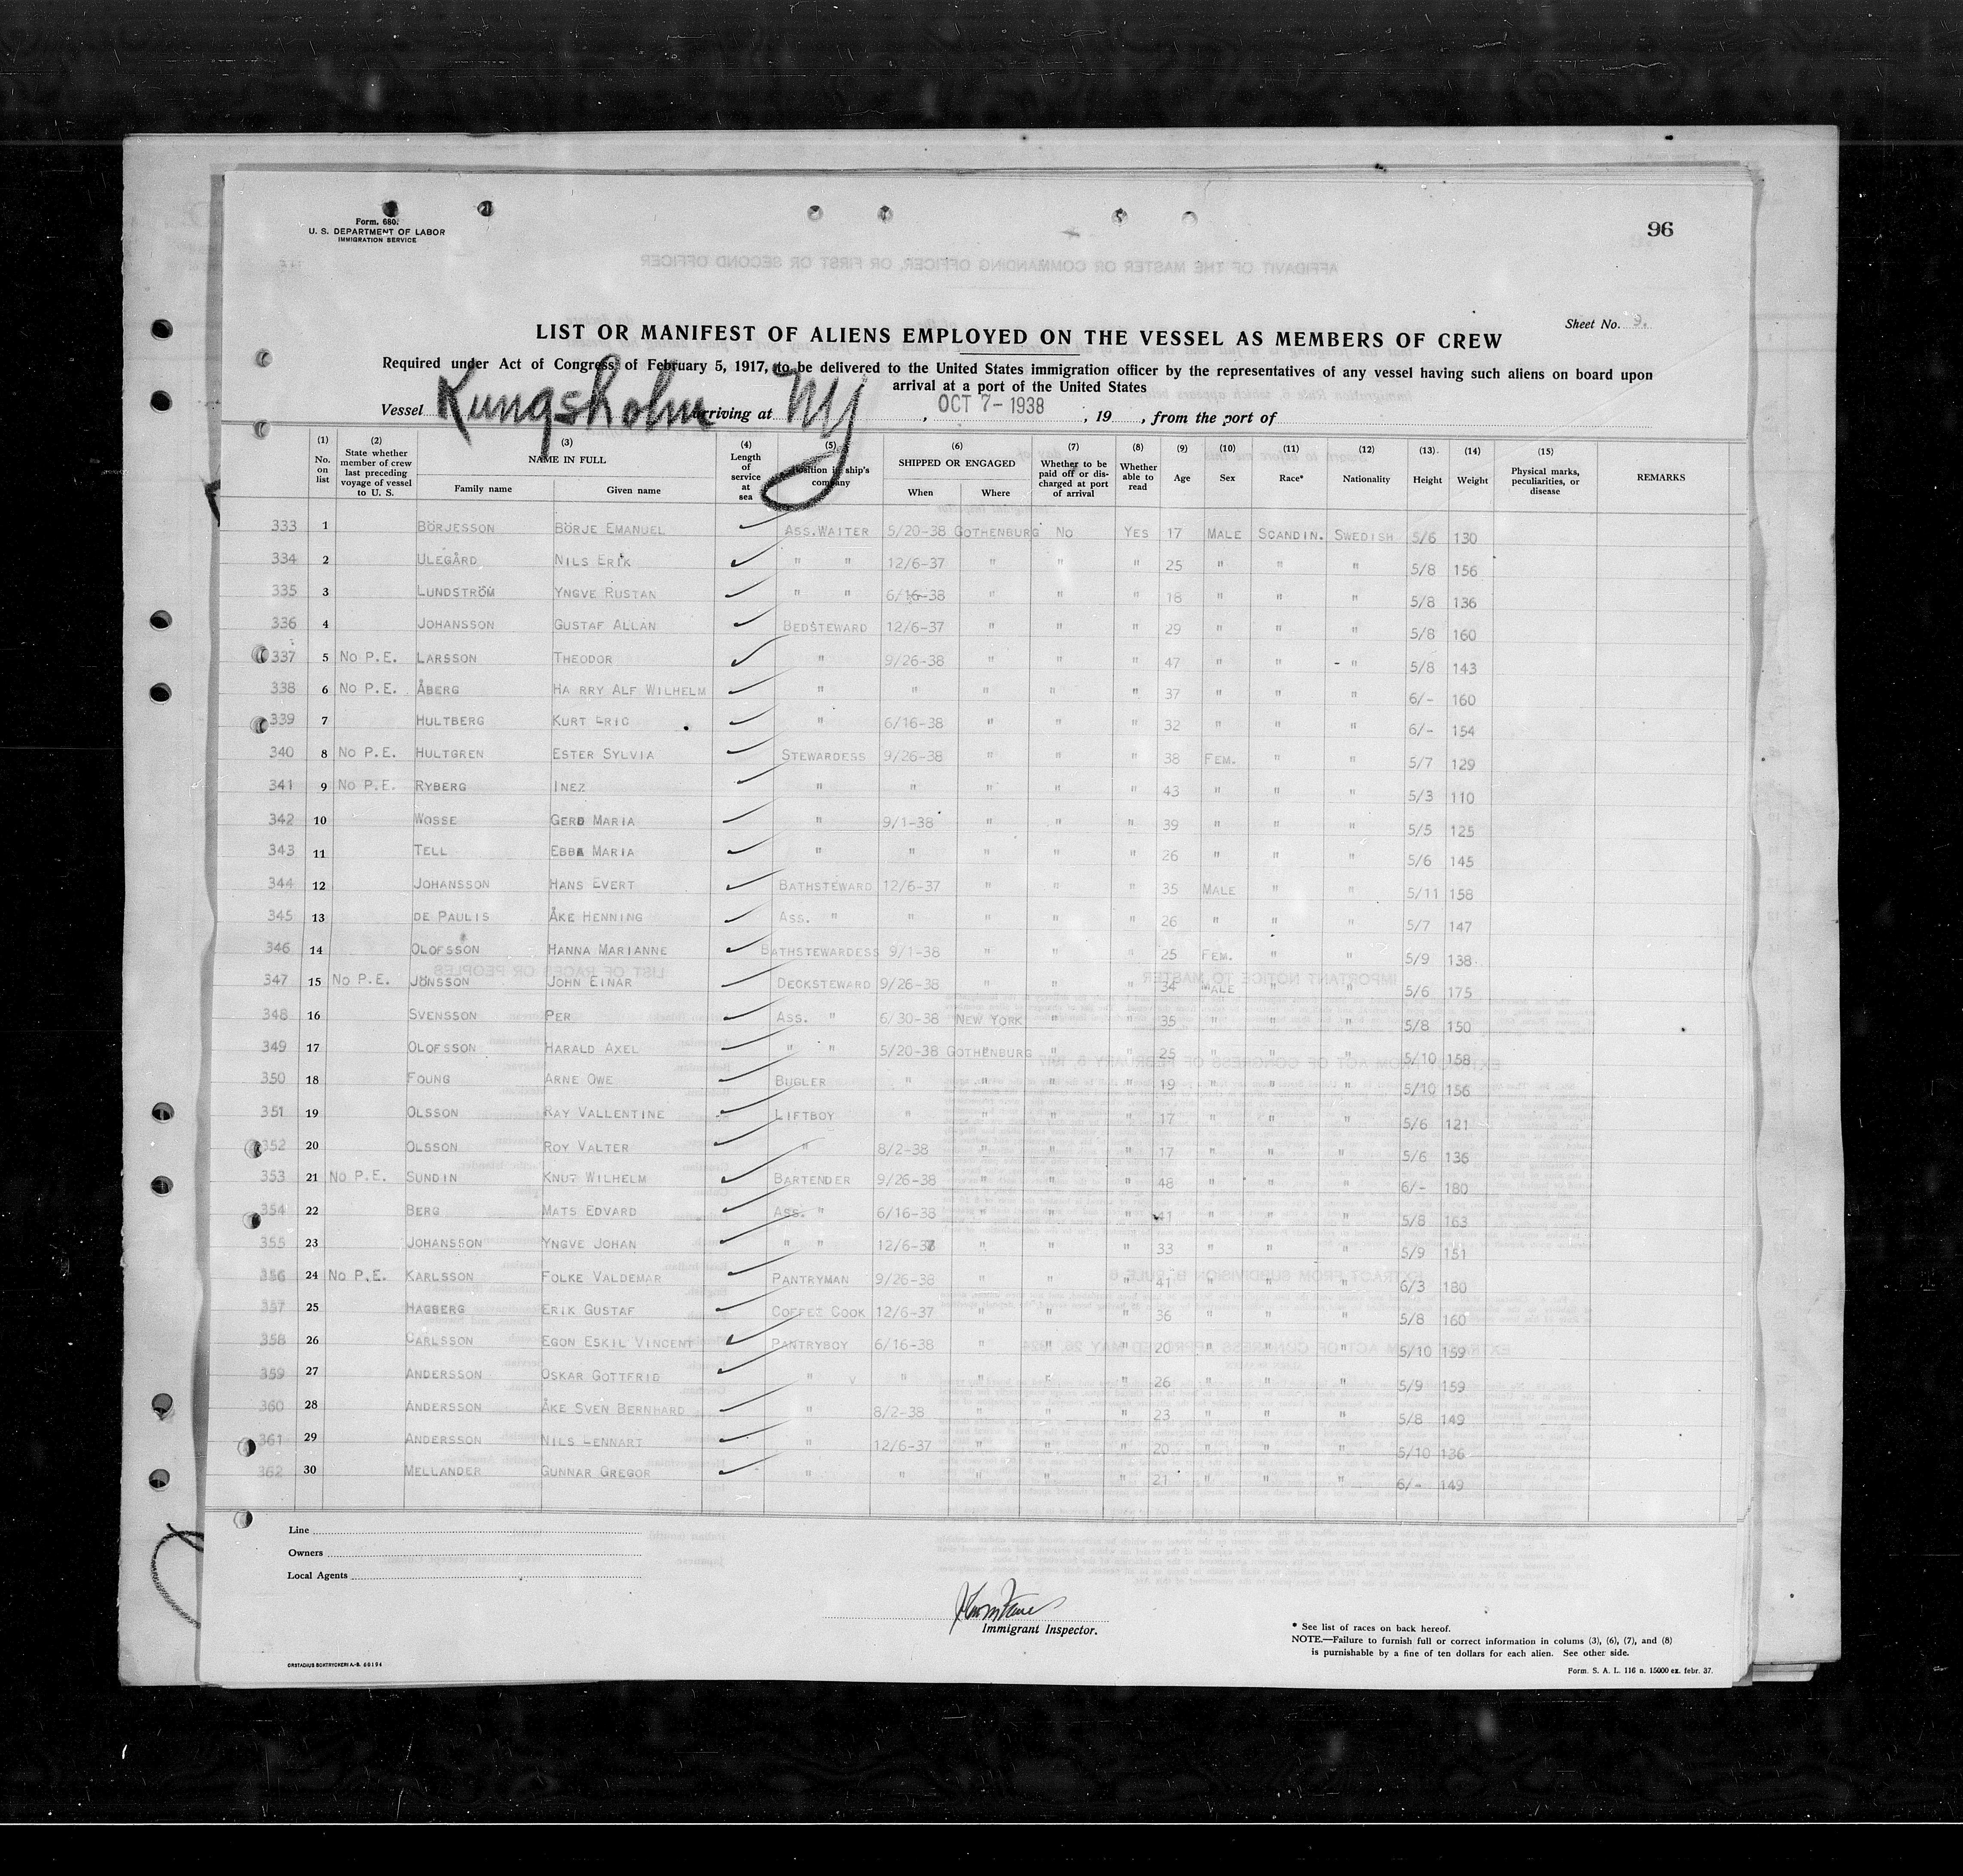 Form. 680.
U. S. DEPARTMENT OF LABOR
IMMIGRATION SERVICE
96
Sheet No. 9.
LIST OR MANIFEST OF ALIENS EMPLOYED ON THE VESSEL AS MEMBERS OF CREW
Required under Act of Congress of February 5, 1917, to be delivered to the United States immigration officer by the representatives of any vessel having such aliens on board upon
arrival at a port of the United States
Vessel Kungsholm arriving at NY, OCT 7- 1938, 19, from the port of
(1) No. on list (2) State whether member of crew last preceding voyage of vessel to U. S. (3) NAME IN FULL Family name Given name (4) Length of service at sea (5) Position in ship's company (6) SHIPPED OR ENGAGED When Where (7) Whether to be paid off or discharged at port of arrival (8) Whether able to read (9) Age (10) Sex (11) Race* (12) Nationality (13) Height (14) Weight (15) Physical marks, peculiarities, or disease REMARKS
333 1 BÖRJESSON BÖRJE EMANUEL ✓ ASS.WAITER 5/20-38 GOTHENBURG NO YES 17 MALE SCANDIN. SWEDISH 5/6 130
334 2 ULEGÅRD NILS ERIK ✓ " " 12/6-37 " " " 25 " " " 5/8 156
335 3 LUNDSTRÖM YNGVE RUSTAN ✓ " " 6/16-38 " " " 18 " " " 5/8 136
336 4 JOHANSSON GUSTAF ALLAN ✓ BEDSTEWARD 12/6-37 " " " 29 " " " 5/8 160
337 5 NO P.E. LARSSON THEODOR ✓ " 9/26-38 " " " 47 " " - " 5/8 143
338 6 NO P.E. ÅBERG HA RRY ALF WILHELM ✓ " " " " " 37 " " " 6/- 160
339 7 HULTBERG KURT ERIC ✓ " 6/16-38 " " " 32 " " " 6/- 154
340 8 NO P.E. HULTGREN ESTER SYLVIA ✓ STEWARDESS 9/26-38 " " " 38 FEM. " " 5/7 129
341 9 NO P.E. RYBERG INEZ ✓ " " " " " 43 " " " 5/3 110
342 10 WOSSE GERD MARIA ✓ " 9/1-38 " " " 39 " " " 5/5 125
343 11 TELL EBBA MARIA ✓ " " " " " 26 " " " 5/6 145
344 12 JOHANSSON HANS EVERT ✓ BATHSTEWARD 12/6-37 " " " 35 MALE " " 5/11 158
345 13 DE PAULIS ÅKE HENNING ✓ ASS. " " " " " 26 " " " 5/7 147
346 14 OLOFSSON HANNA MARIANNE ✓ BATHSTEWARDESS 9/1-38 " " " 25 FEM. " " 5/9 138
347 15 NO P.E. JÖNSSON JOHN EINAR ✓ DECKSTEWARD 9/26-38 " " " 34 MALE " " 5/6 175
348 16 SVENSSON PER ✓ ASS. " 6/30-38 NEW YORK " " 35 " " " 5/8 150
349 17 OLOFSSON HARALD AXEL ✓ " " 5/20-38 GOTHENBURG " " 25 " " " 5/10 158
350 18 FOUNG ARNE OWE ✓ BUGLER " " " " 19 " " " 5/10 156
351 19 OLSSON RAY VALLENTINE ✓ LIFTBOY " " " " 17 " " " 5/6 121
352 20 OLSSON ROY VALTER ✓ " 8/2-38 " " " 17 " " " 5/6 136
353 21 NO P.E. SUNDIN KNUT WILHELM ✓ BARTENDER 9/26-38 " " " 48 " " " 6/- 180
354 22 BERG MATS EDVARD ✓ ASS. " 6/16-38 " " " 41 " " " 5/8 163
355 23 JOHANSSON YNGVE JOHAN ✓ " " 12/6-37 " " " 33 " " " 5/9 151
356 24 NO P.E. KARLSSON FOLKE VALDEMAR ✓ PANTRYMAN 9/26-38 " " " 41 " " " 6/3 180
357 25 HAGBERG ERIK GUSTAF ✓ COFFEE COOK 12/6-37 " " " 36 " " " 5/8 160
358 26 CARLSSON EGON ESKIL VINCENT ✓ PANTRYBOY 6/16-38 " " " 20 " " " 5/10 159
359 27 ANDERSSON OSKAR GOTTFRID ✓ " " " " " 26 " " " 5/9 159
360 28 ANDERSSON ÅKE SVEN BERNHARD ✓ " 8/2-38 " " " 23 " " " 5/8 149
361 29 ANDERSSON NILS LENNART ✓ " 12/6-37 " " " 20 " " " 5/10 136
362 30 MELLANDER GUNNAR GREGOR ✓ " " " " " 21 " " " 6/- 149
Line
Owners
Local Agents
Immigrant Inspector.
* See list of races on back hereof.
NOTE.—Failure to furnish full or correct information in colums (3), (6), (7), and (8)
is purnishable by a fine of ten dollars for each alien. See other side.
ORSTADIUS BOKTRYCKERI A.-B. 60194
Form. S. A. L. 116 n. 15000 ex. febr. 37.